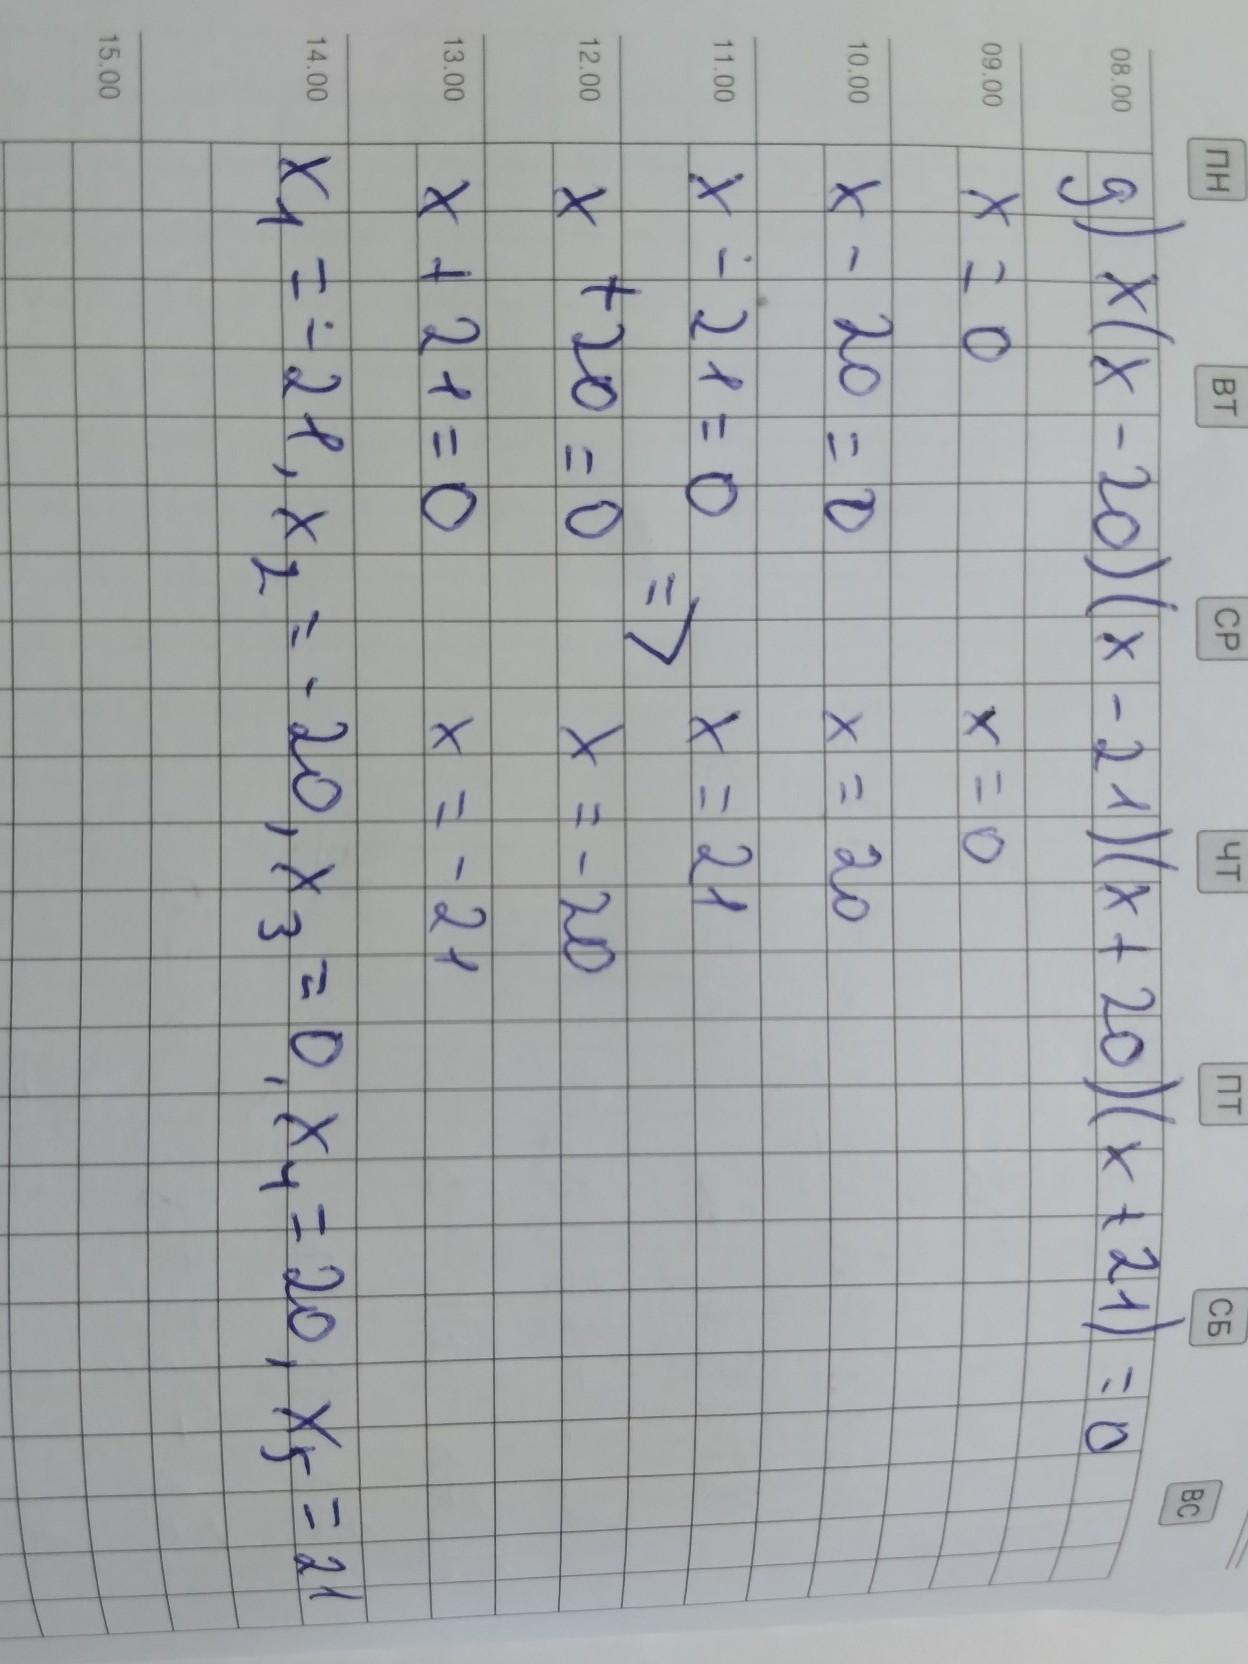 ПН ВТ СР ЧТ ПТ СБ ВС
08.00 g) x(x - 20)(x - 21)(x + 20)(x + 21) = 0
09.00 x = 0 x = 0
10.00 x - 20 = 0 x = 20
11.00 x - 21 = 0 x = 21
=>
12.00 x + 20 = 0 x = - 20
13.00 x + 21 = 0 x = - 21
14.00 x₁ = - 21, x₂ = - 20, x₃ = 0, x₄ = 20, x₅ = 21
15.00